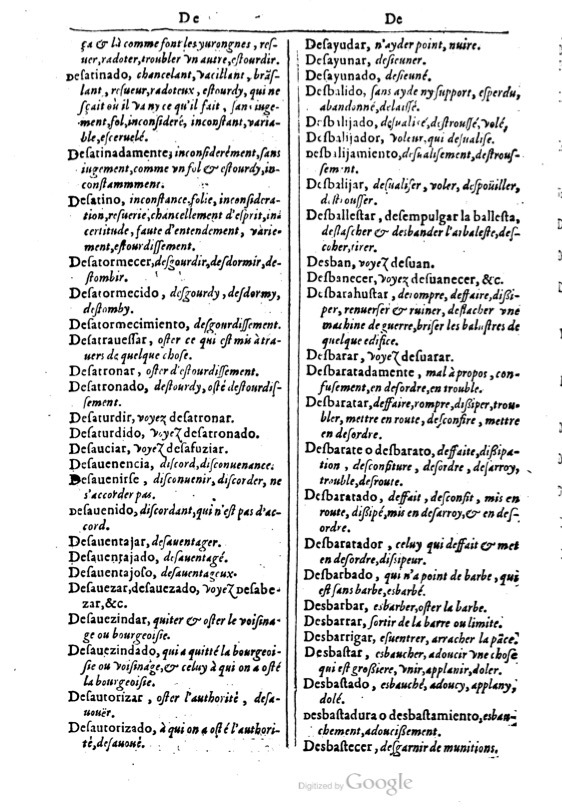 De
ça & là comme font les yurongnes, res-
uer, radoter, troubler vn autre, estourdir.
Desatinado, chancelant, vacillant, brãs-
lant, resueur, radoteux, estourdy, qui ne
sçait où il va ny ce qu'il fait, sans iuge-
ment, fol, inconsideré, inconstant, varia-
ble, esceruelé.
Desatinadamente, inconsiderément, sans
iugement, comme vn fol & estourdy, in-
constammment.
Desatino, inconstance, folie, inconsidera-
tion, resuerie, chancellement d'esprit, in-
certitude, faute d'entendement, varie-
ment, estourdissement.
Desatormecer, desgourdir, desdormir, de-
stombir.
Desatormecido, desgourdy, desdormy,
destomby.
Desatormecimiento, desgourdissement.
Desatrauessar, oster ce qui est mis à tra-
uers de quelque chose.
Desatronar, oster d'estourdissement.
Desatronado, destourdy, osté destourdis-
sement.
Desaturdir, voyez desatronar.
Desaturdido, voyez desatronado.
Desauciar, voyez desafuziar.
Desauenencia, discord, disconuenance.
Desauenirse, disconuenir, discorder, ne
s'accorder pas.
Desauenido, discordant, qui n'est pas d'ac-
cord.
Desauentajar, desauentager.
Desauentajado, desauentagé.
Desauentajoso, desauentageux.
Desauezar, desauezado, voyez desabe-
zar, &c.
Desauezindar, quiter & oster le voisina-
ge ou bourgeoisie.
Desauezindado, qui a quitté la bourgeoi-
sie ou voisinage, & celuy à qui on a osté
la bourgeoisie.
Desautorizar, oster l'authorité, desa-
uoüer.
Desautorizado, à qui on a osté l'authori-
té, desauoüé.
De
Desayudar, n'ayder point, nuire.
Desayunar, desieuner.
Desayunado, desieuné.
Desbalido, sans ayde ny support, esperdu,
abandonné, delaissé.
Desbalijado, desualisé, destroussé, volé,
Desbalijador, voleur, qui desualise.
Desbalijamiento, desualisement, destrous-
sement.
Desbalijar, desualiser, voler, despoüiller,
destrousser.
Desballestar, desempulgar la ballesta,
deslascher & desbander l'arbaleste, des-
cocher, tirer.
Desban, voyez desuan.
Desbanecer, voyez desuanecer, &c.
Desbarahustar, derompre, deffaire, dissi-
per, renuerser & ruiner, destacher vne
machine de guerre, briser les balustres de
quelque edifice.
Desbarar, voyez desuarar.
Desbaratadamente, mal à propos, con-
fusement, en desordre, en trouble.
Desbaratar, deffaire, rompre, dissiper, trou-
bler, mettre en route, desconfire, mettre
en desordre.
Desbarate o desbarato, deffaite, dissipa-
tion, desconfiture, desordre, desarroy,
trouble, desroute.
Desbaratado, deffait, desconfit, mis en
route, dissipé, mis en desarroy, & en des-
ordre.
Desbaratador, celuy qui deffait & met
en desordre, dissipeur.
Desbarbado, qui n'a point de barbe, qui
est sans barbe, esbarbé.
Desbarbar, esbarber, oster la barbe.
Desbarrar, sortir de la barre ou limite.
Desbarrigar, esuentrer, arracher la pāce.
Desbastar, esbaucher, adoucir vne chose
qui est grossiere, vnir, applanir, doler.
Desbastado, esbauché, adoucy, applany,
dolé.
Desbastadura o desbastamiento, esbau-
chement, adoucissement.
Desbastecer, desgarnir de munitions.
Digitized by Google